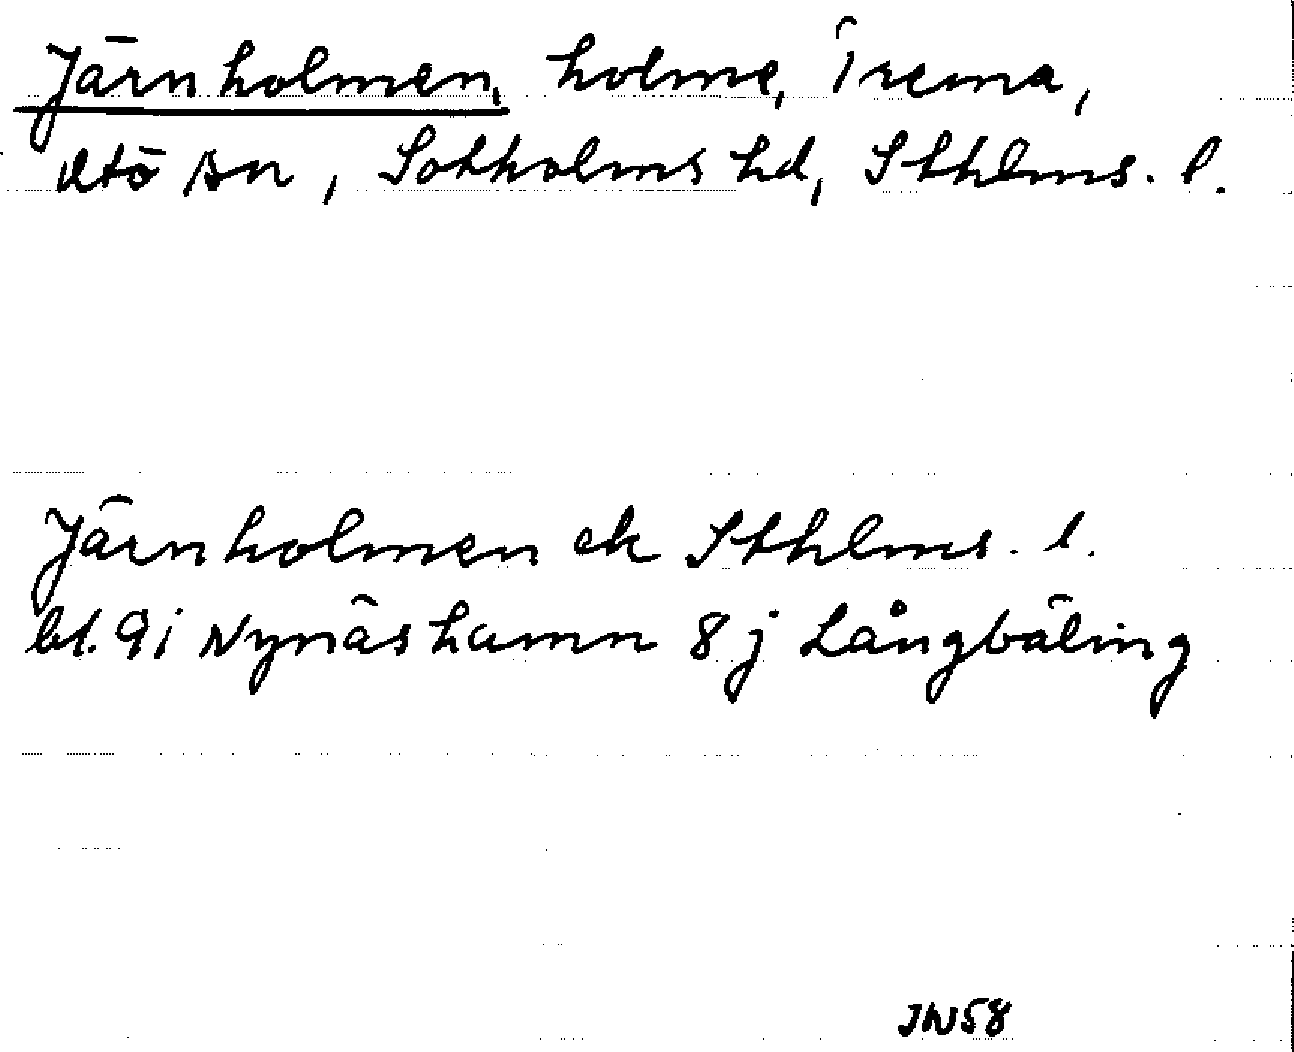 Järnholmen, holme, Trema,
Utö sn, Sotholms hd, Sthlms. l.
Järnholmen ek Sthlms. l.
bl. 9i Nynäshamn 8j Långbäling
JW58